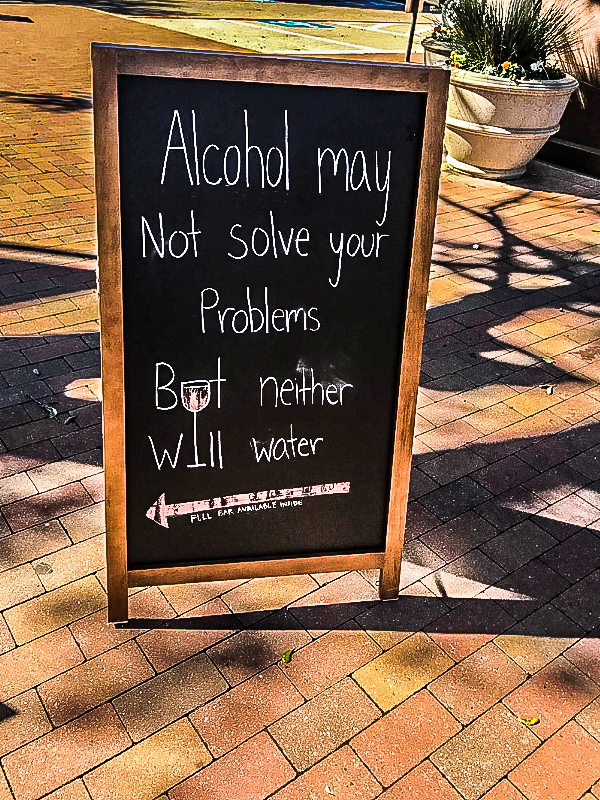 Alcohol may
Not solve your
Problems
But neither
Will water
FULL BAR AVAILABLE INSIDE